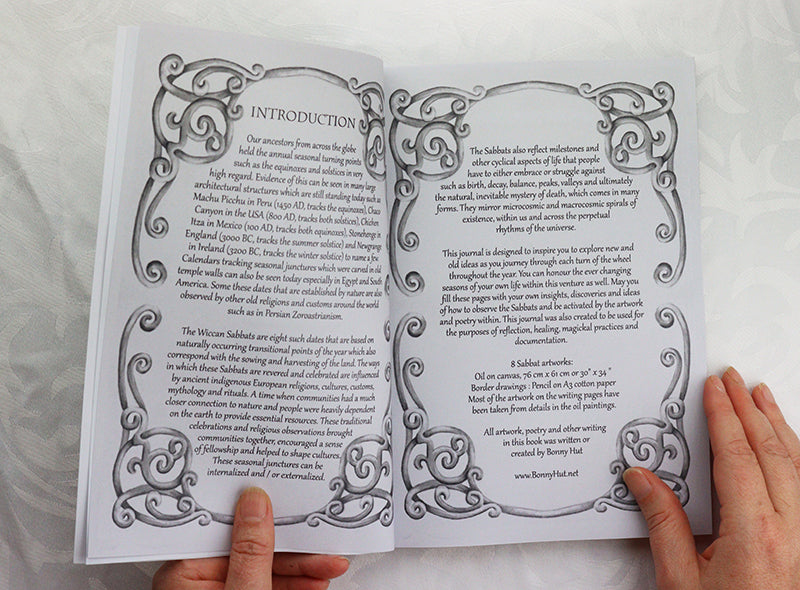 INTRODUCTION
Our ancestors from across the globe
held the annual seasonal turning points
such as the equinoxes and solstices in very
high regard. Evidence of this can be seen in many large
architectural structures which are still standing today such as
Machu Picchu in Peru (1450 AD, tracks the equinoxes), Chaco
Canyon in the USA (800 AD, tracks both solstices), Chichen
Itza in Mexico (100 AD, tracks both equinoxes), Stonehenge in
England (3000 BC, tracks the summer solstice) and Newgrange
in Ireland (3200 BC, tracks the winter solstice) to name a few.
Calendars tracking seasonal junctures which were carved in old
temple walls can also be seen today especially in Egypt and South
America. Some these dates that are established by nature are also
observed by other old religions and customs around the world
such as in Persian Zoroastrianism.
The Wiccan Sabbats are eight such dates that are based on
naturally occurring transitional points of the year which also
correspond with the sowing and harvesting of the land. The ways
in which these Sabbats are revered and celebrated are influenced
by ancient indigenous European religions, cultures, customs,
mythology and rituals. A time when communities had a much
closer connection to nature and people were heavily dependent
on the earth to provide essential resources. These traditional
celebrations and religious observations brought
communities together, encouraged a sense
of fellowship and helped to shape cultures.
These seasonal junctures can be
internalized and / or externalized.
The Sabbats also reflect milestones and
other cyclical aspects of life that people
have to either embrace or struggle against
such as birth, decay, balance, peaks, valleys and ultimately
the natural, inevitable mystery of death, which comes in many
forms. They mirror microcosmic and macrocosmic spirals of
existence, within us and across the perpetual
rhythms of the universe.
This journal is designed to inspire you to explore new and
old ideas as you journey through each turn of the wheel
throughout the year. You can honour the ever changing
seasons of your own life within this venture as well. May you
fill these pages with your own insights, discoveries and ideas
of how to observe the Sabbats and be activated by the artwork
and poetry within. This journal was also created to be used for
the purposes of reflection, healing, magickal practices and
documentation.
8 Sabbat artworks:
Oil on canvas, 76 cm x 61 cm or 30" x 34 "
Border drawings : Pencil on A3 cotton paper
Most of the artwork on the writing pages have
been taken from details in the oil paintings.
All artwork, poetry and other writing
in this book was written or
created by Bonny Hut
www.BonnyHut.net